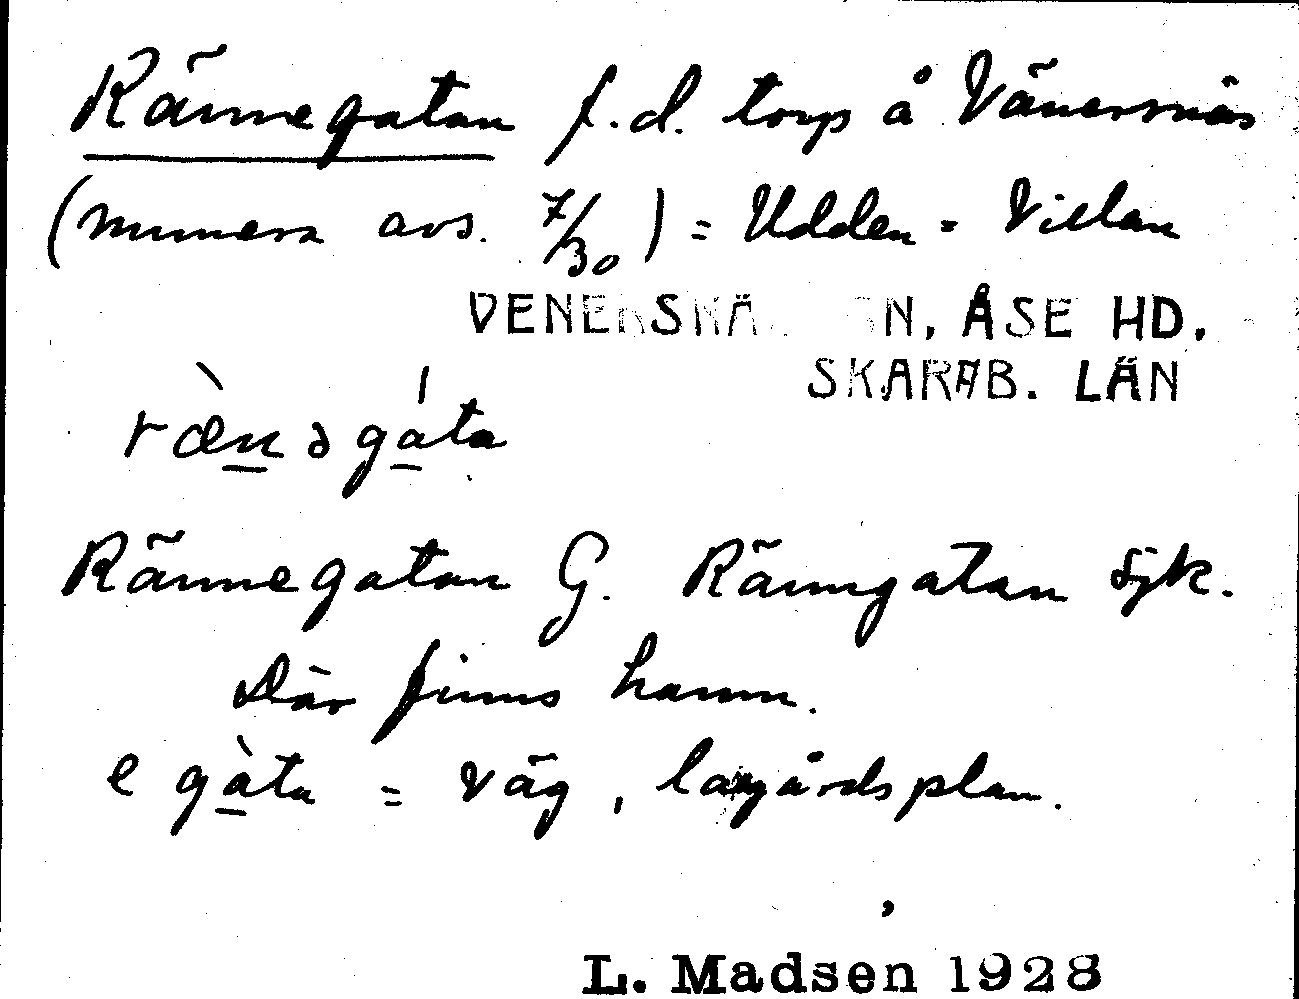 Rännegatan f.d. torp å Vänersnäs
(numera avs. 7/30) = Udden = Villan
VENERSNÄ SN, ÅSE HD.
SKARAB. LÄN
ræ̀nəgáta
Rännegatan G. Ränngatan sjk.
Där finns hamn.
e gàta = väg, lagårdsplan.
L. Madsen 1928